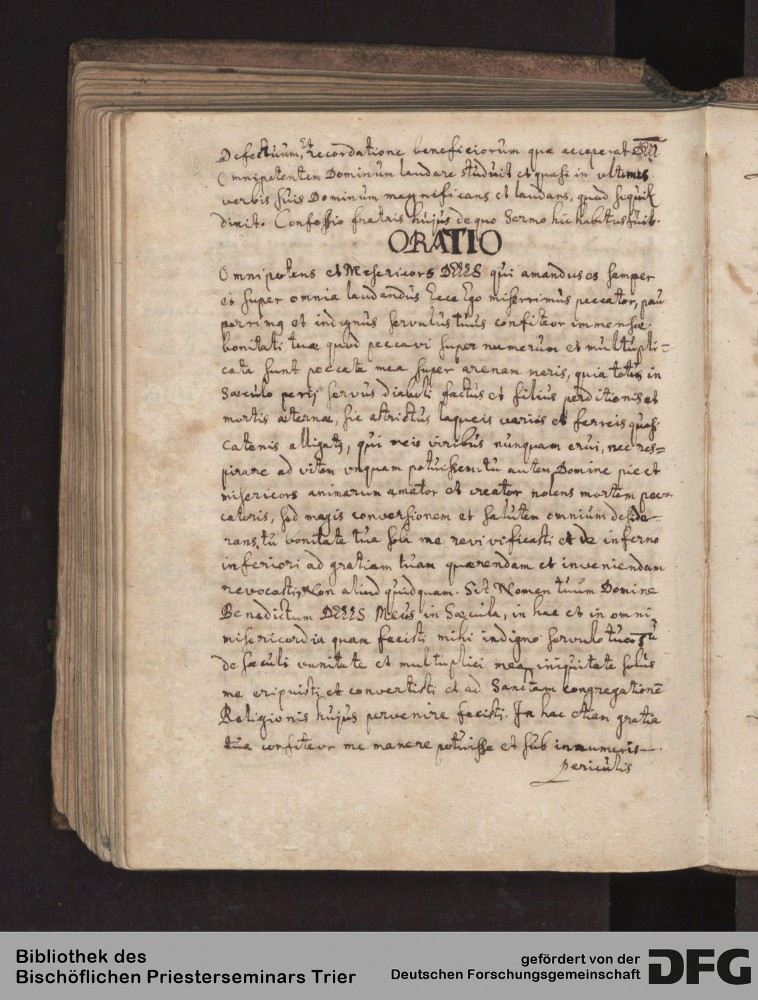 Defectuum, Et recordatione beneficiorum quæ acceperat DEU
Omnipotentem Dominum laudare studuit et quasi in ultimis
verbis suis Dominum magnificans et laudans, quod sequit
dixit. Confessio fratris hujus de quo Sermo hic habitus fuit.
ORATIO
Omnipotens et Misericors DEUS qui amandus es semper
et super omnia laudandus Ecce Ego miserrimus peccator, pau
perrimq et indignus servulus tuus confiteor immensæ
bonitati tuæ quod peccavi super numerum et multipli=
cata sunt peccata mea super arenam maris, quia totus in
Sæculo perij servus diaboli factus et filius perditionis et
mortis æternæ, sic astrictus laqueis varios et ferreis quasi
Catenis alligatq, qui meis viribus nunquam erui, nec res=
pirare ad vitam unquam potuissem: tu autem Domine pie et
misericors animarum amator et creator nolens mortem pec=
catoris, sed magis conversionem et salutem omnium deside
rans, tu bonitate tua sola me revivificasti et de inferno
inferiori ad gratiam tuam quærendam et inveniendam
revocasti, Non aliud quidquam. Sit Nomen tuum Domine
Benedictum DEUS Meus in Sæcula, in hac et in omni
misericordia quam fecisti mihi indigno servulo tuo: Tu
de sæculi vanitate et multiplici mea iniquitate solus
me eripuisti et convertisti et ad Sanctam congregatione
Religionis hujus pervenire fecisti. In hac etiam gratia
tua confiteor me manere potuisse et sub innumeris
periculis
Bibliothek des
Bischöflichen Priesterseminars Trier
gefördert von der
Deutschen Forschungsgemeinschaft
DFG